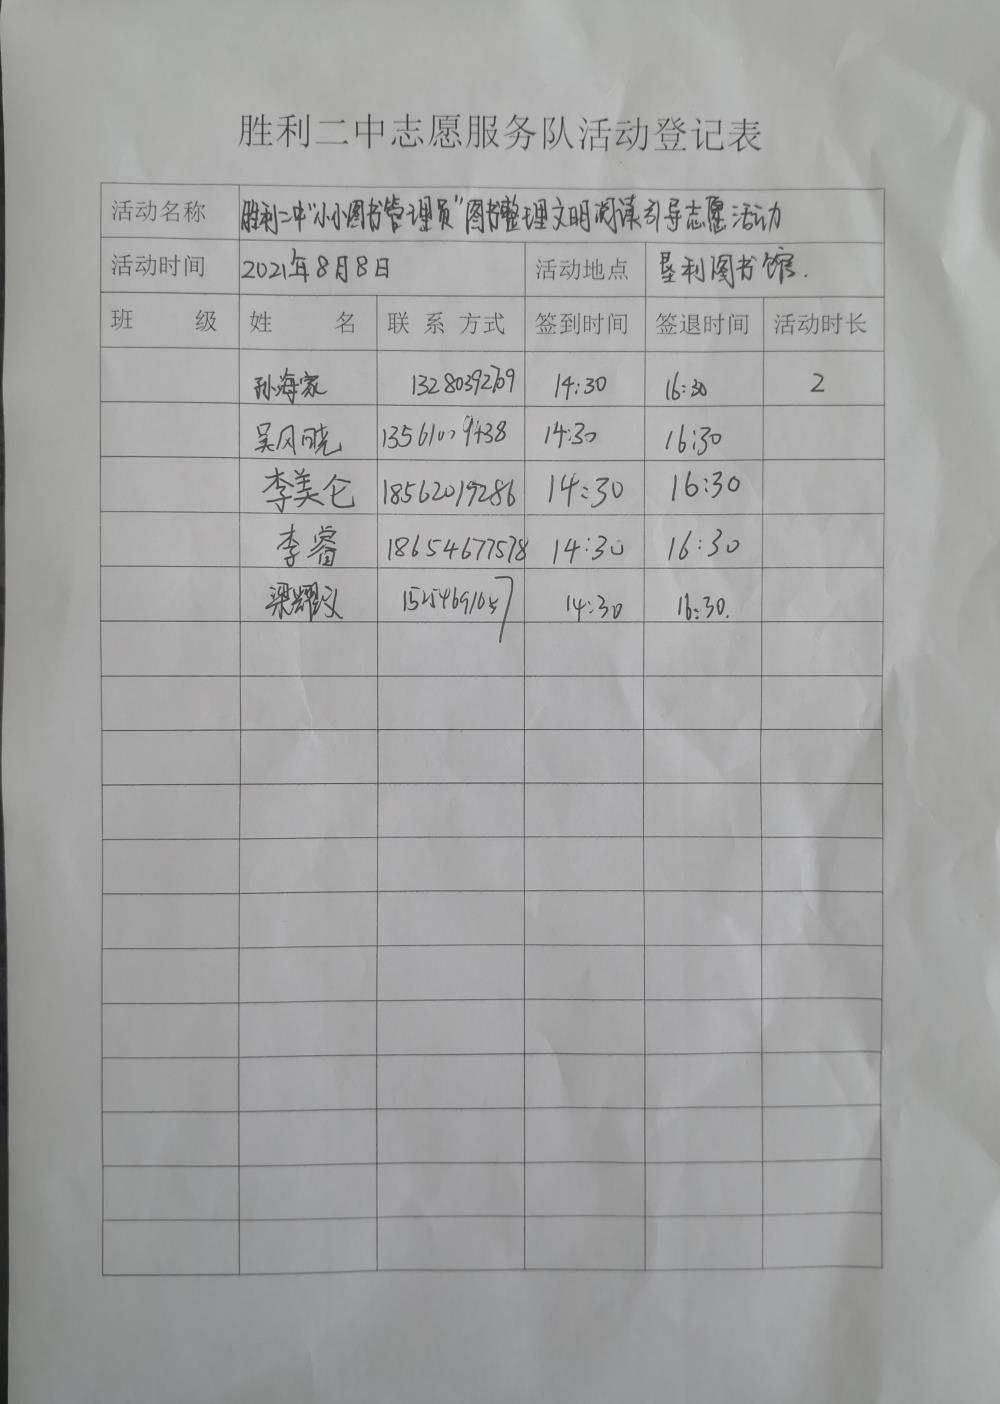 胜利二中志愿服务队活动登记表
活动名称 胜利二中“小小图书管理员”图书整理文明阅读引导志愿活动
活动时间 2021年8月8日 活动地点 垦利图书馆.
班 级 姓 名 联 系 方式 签到时间 签退时间 活动时长
孙海家 13280392709 14:30 16:30 2
吴风晓 14:30 16:30
李美仑 18562019286 14:30 16:30
李睿 18654677578 14:30 16:30
梁耀 14:30 16:30.